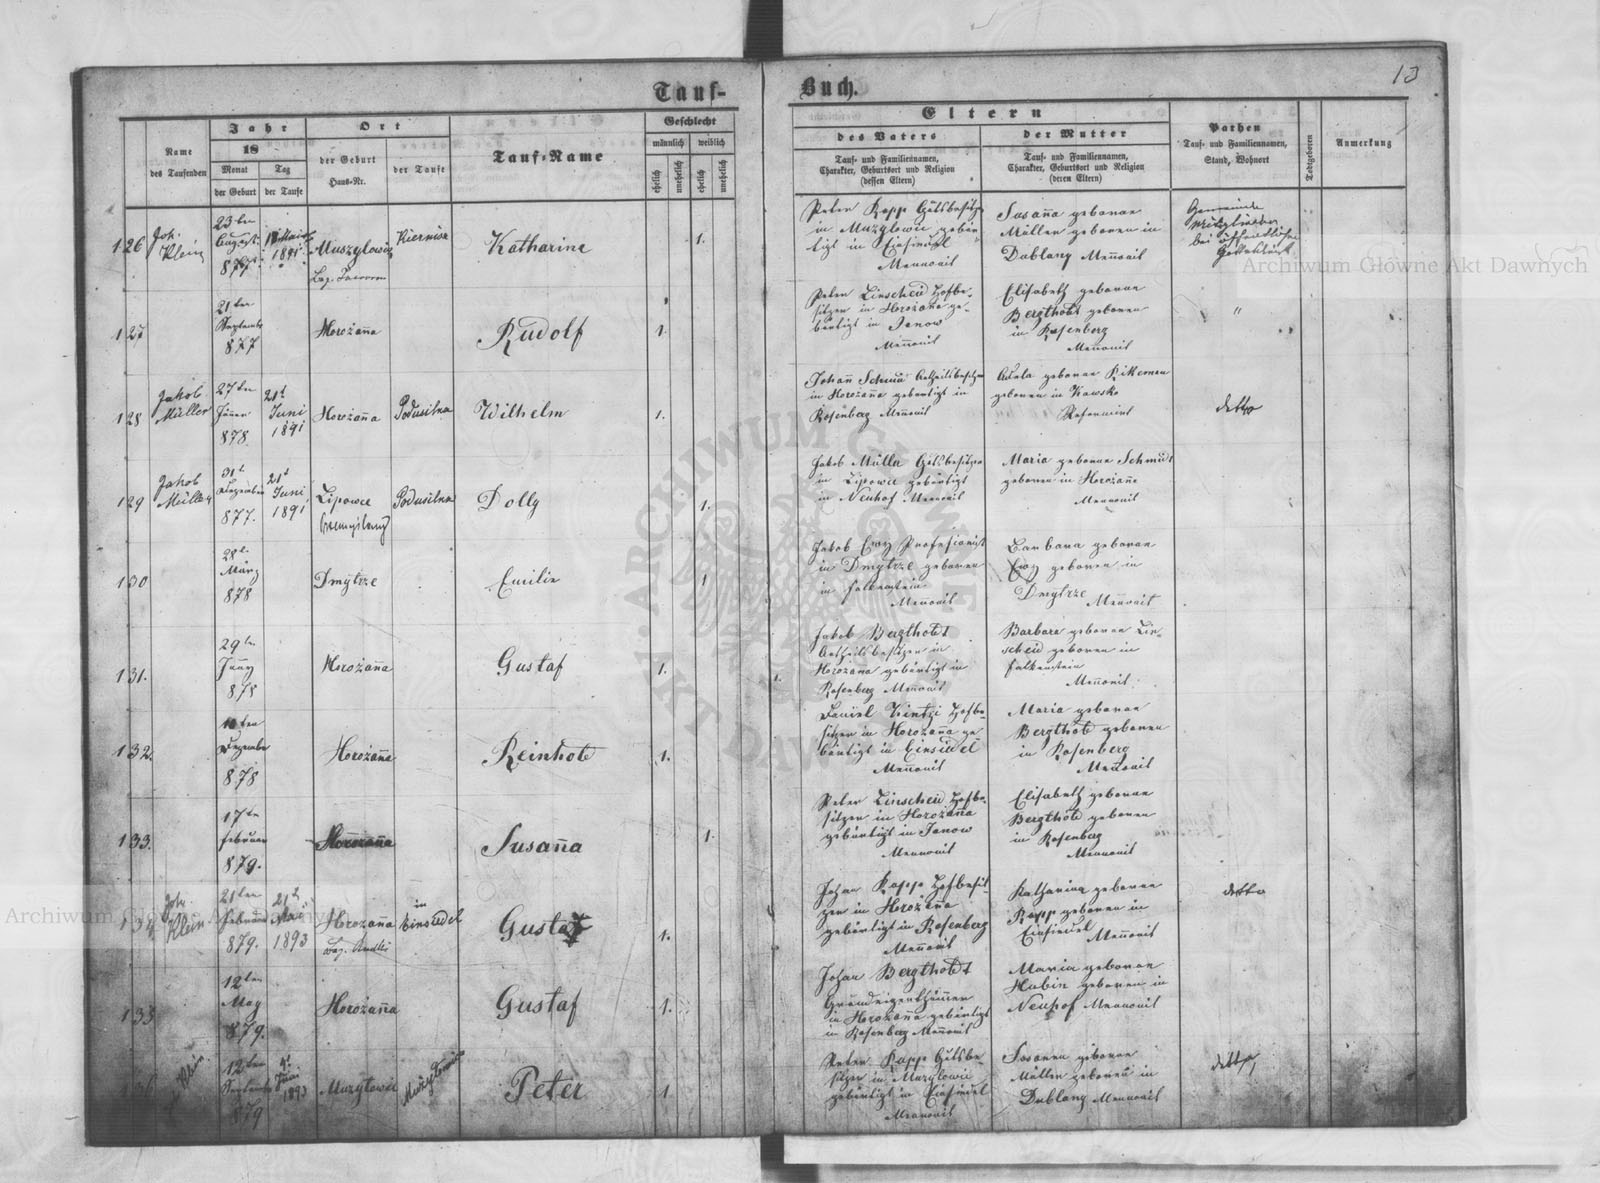 13
Tauf-
Buch.
Name
des Taufenden
Jahr
18
Monat
der Geburt
Tag
der Taufe
Ort
der Geburt
Haus-Nr.
der Taufe
Tauf-Name
Geschlecht
männlich
weiblich
ehelich
unehelich
ehelich
unehelich
Eltern
des Vaters
Tauf- und Familiennamen,
Charakter, Geburtsort und Religion
(dessen Eltern)
der Mutter
Tauf- und Familiennamen,
Charakter, Geburtsort und Religion
(deren Eltern)
Pathen
Tauf- und Familiennamen,
Stand, Wohnort
Todtgeboren
Anmerkung
126
Joh.
Klein
23ten
August
877
1891
Muszylowice
Kiernica
Katharine
1.
Peter Rapp Gutsbesitz
in Muzylowic gebür
tigt in Einsiedel
Mennonit
Susaña geborne
Müller geboren in
Dublany Meñonit
Gemeinde
Mitglieder
bei öffentlichen
127
21ten
Septembr
877
Horożaña
Rudolf
1.
Peter Linscheid Hofbe-
sitzer in Horożaña ge-
bürtigt in Janow
Meñonit
Elisabeth geborne
Bergtholdt geboren
in Rosenberg
Meñonit
"
128
Jakob
Müller
27ten
Jäner
878
21t
Juni
1891
Horożaña
Podusilna
Wilhelm
1.
Johañ Schmidt Antheilsbesitzer
in Horożaña gebürtigt in
Rosenberg Meñonit
geboren in
Reformirt
detto
129
Jakob
Müller
31t
Dezember
877.
21t
Juni
1891
Lipowce
Podusilna
Dolly
1.
Jakob Müller Gutsbesitzer
in Lipowce gebürtigt
in Neuhof Meñonit
Maria geborne Schmidt
geboren in Horożañe
Meñonit
130
28t
März
878
Dmytrze
Emilie
1
Jakob Ewy Profesionist
in Dmytrze geboren
in Falkenstein
Meñonit
Barbara geborne
Ewy geboren in
Dmytrze
Meñonit
131.
29ten
878
Horożaña
Gustaf
1.
Jakob Bergtholdt
Antheilsbesitzer in
Horożaña gebürtigt in
Rosenberg Meñonit
Barbara geborne Lin-
scheid geboren in
Falkenstein
Meñonit.
132.
Dezember
878
Horożañe
Reinhold
1.
Daniel Kintzi Hofbe-
sitzer in Horożaña ge
bürtigt in Einsiedel
Meñonit
Maria geborne
Bergthold geboren
in Rosenberg
Meñonit
133.
17ten
Februar
879.
Horożaña
Susaña
1.
Peter Linscheid Hofbe-
sitzer in Horożaña
gebürtigt in Janow
Mennonit
Elisabeth geborne
Bergthold geboren
in Rosenberg
Mennonit
134
Joh.
Klein
21ten
Februar
879.
21t
Mai
1893
Horożaña
Bez. Rudki
in
Einsiedel
Gustaf
1.
Johan Rapp Hofbesit-
zer in Horożaña
gebürtigt in Rosenberg
Meñonit
Katharina geborne
Rapp geboren in
Einsiedel
Meñonit
detto
135
12ten
May
879.
Horożaña
Gustaf
1.
Johan Bergtholdt
Grundeigenthümer
in Horożaña gebürtigt
in Rosenberg Meñonit
Maria geborne
Hubin geboren in
Neuhof Mennonit
136
Klein
12ten
Septembr
879
1893
Muzylowic
Muzylowice
Peter
1.
Peter Rapp Gutsbe-
sitzer in Muzylowic
gebürtigt in Einsiedel
Mennonit
Susanna geborne
Müller geboren in
Dublany Mennonit
detto
Archiwum Główne Akt Dawnych
Archiwum Główne Akt Dawnych